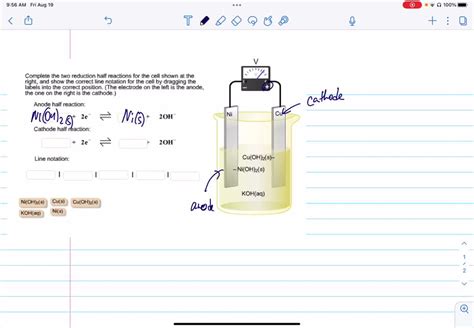 9:56 AM Fri Aug 19
100%
Complete the two reduction half reactions for the cell shown at the
right, and show the correct line notation for the cell by dragging the
labels into the correct position. (The electrode on the left is the anode,
the one on the right is the cathode.)
Anode half reaction:
Ni(OH)2(s) + 2e⁻ ⇌ Ni(s) + 2OH⁻
Cathode half reaction:
+ 2e⁻ ⇌ + 2OH⁻
Line notation:
| | | |
Ni(OH)2(s) Cu(s) Cu(OH)2(s)
KOH(aq) Ni(s)
V
cathode
Ni Cu
Cu(OH)2(s)–
–Ni(OH)2(s)
KOH(aq)
anode
1
2